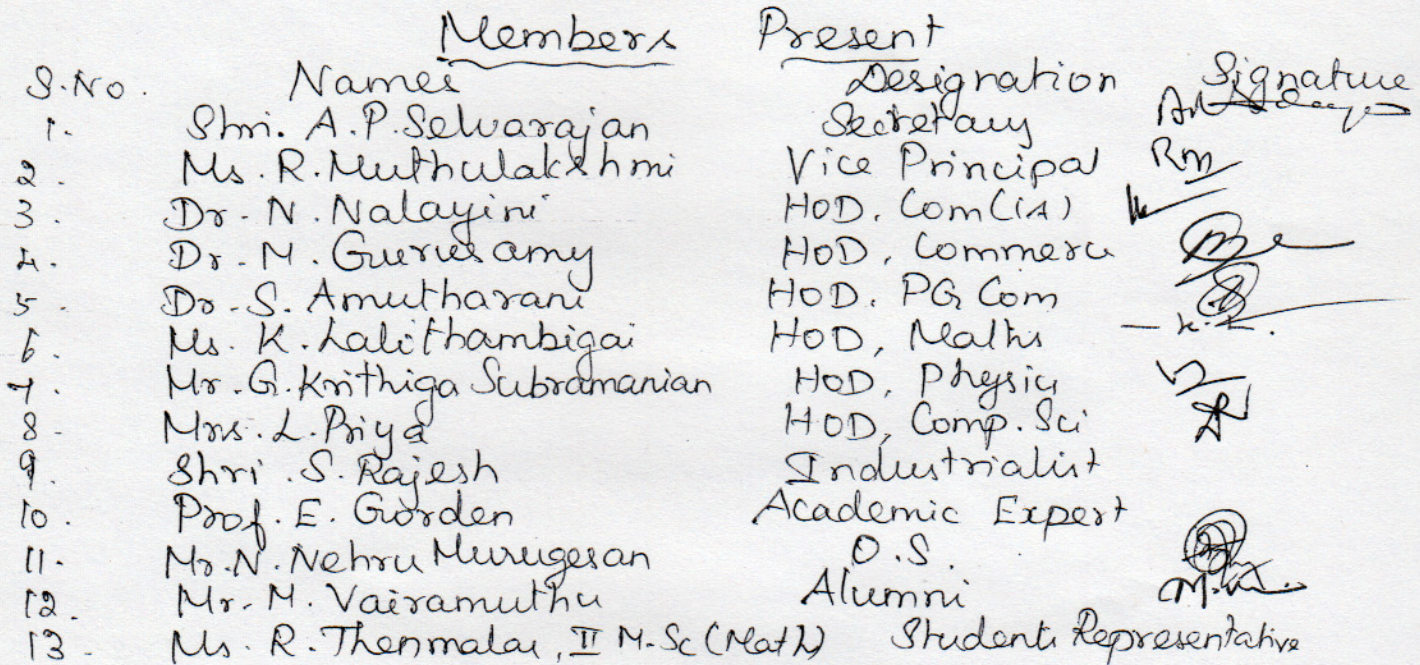 Members Present
S.No. Names Designation Signature
1. Shri. A.P. Selvarajan Secretary
2. Ms. R. Muthulakshmi Vice Principal Rm
3. Dr. N. Nalayini HOD, Com(CA)
4. Dr. M. Gurusamy HOD, Commerce
5. Dr. S. Amutharani HOD, PG Com
6. Ms. K. Lalithambigai HOD, Maths K.L.
7. Mr. G. Krithiga Subramanian HOD, Physics
8. Mrs. L. Priya HOD, Comp. Sci
9. Shri. S. Rajesh Industrialist
10. Prof. E. Gorden Academic Expert
11. Mr. N. Nehru Murugesan O.S.
12. Mr. M. Vairamuthu Alumni
13. Ms. R. Thenmalai, II M.Sc (Math) Students Representative